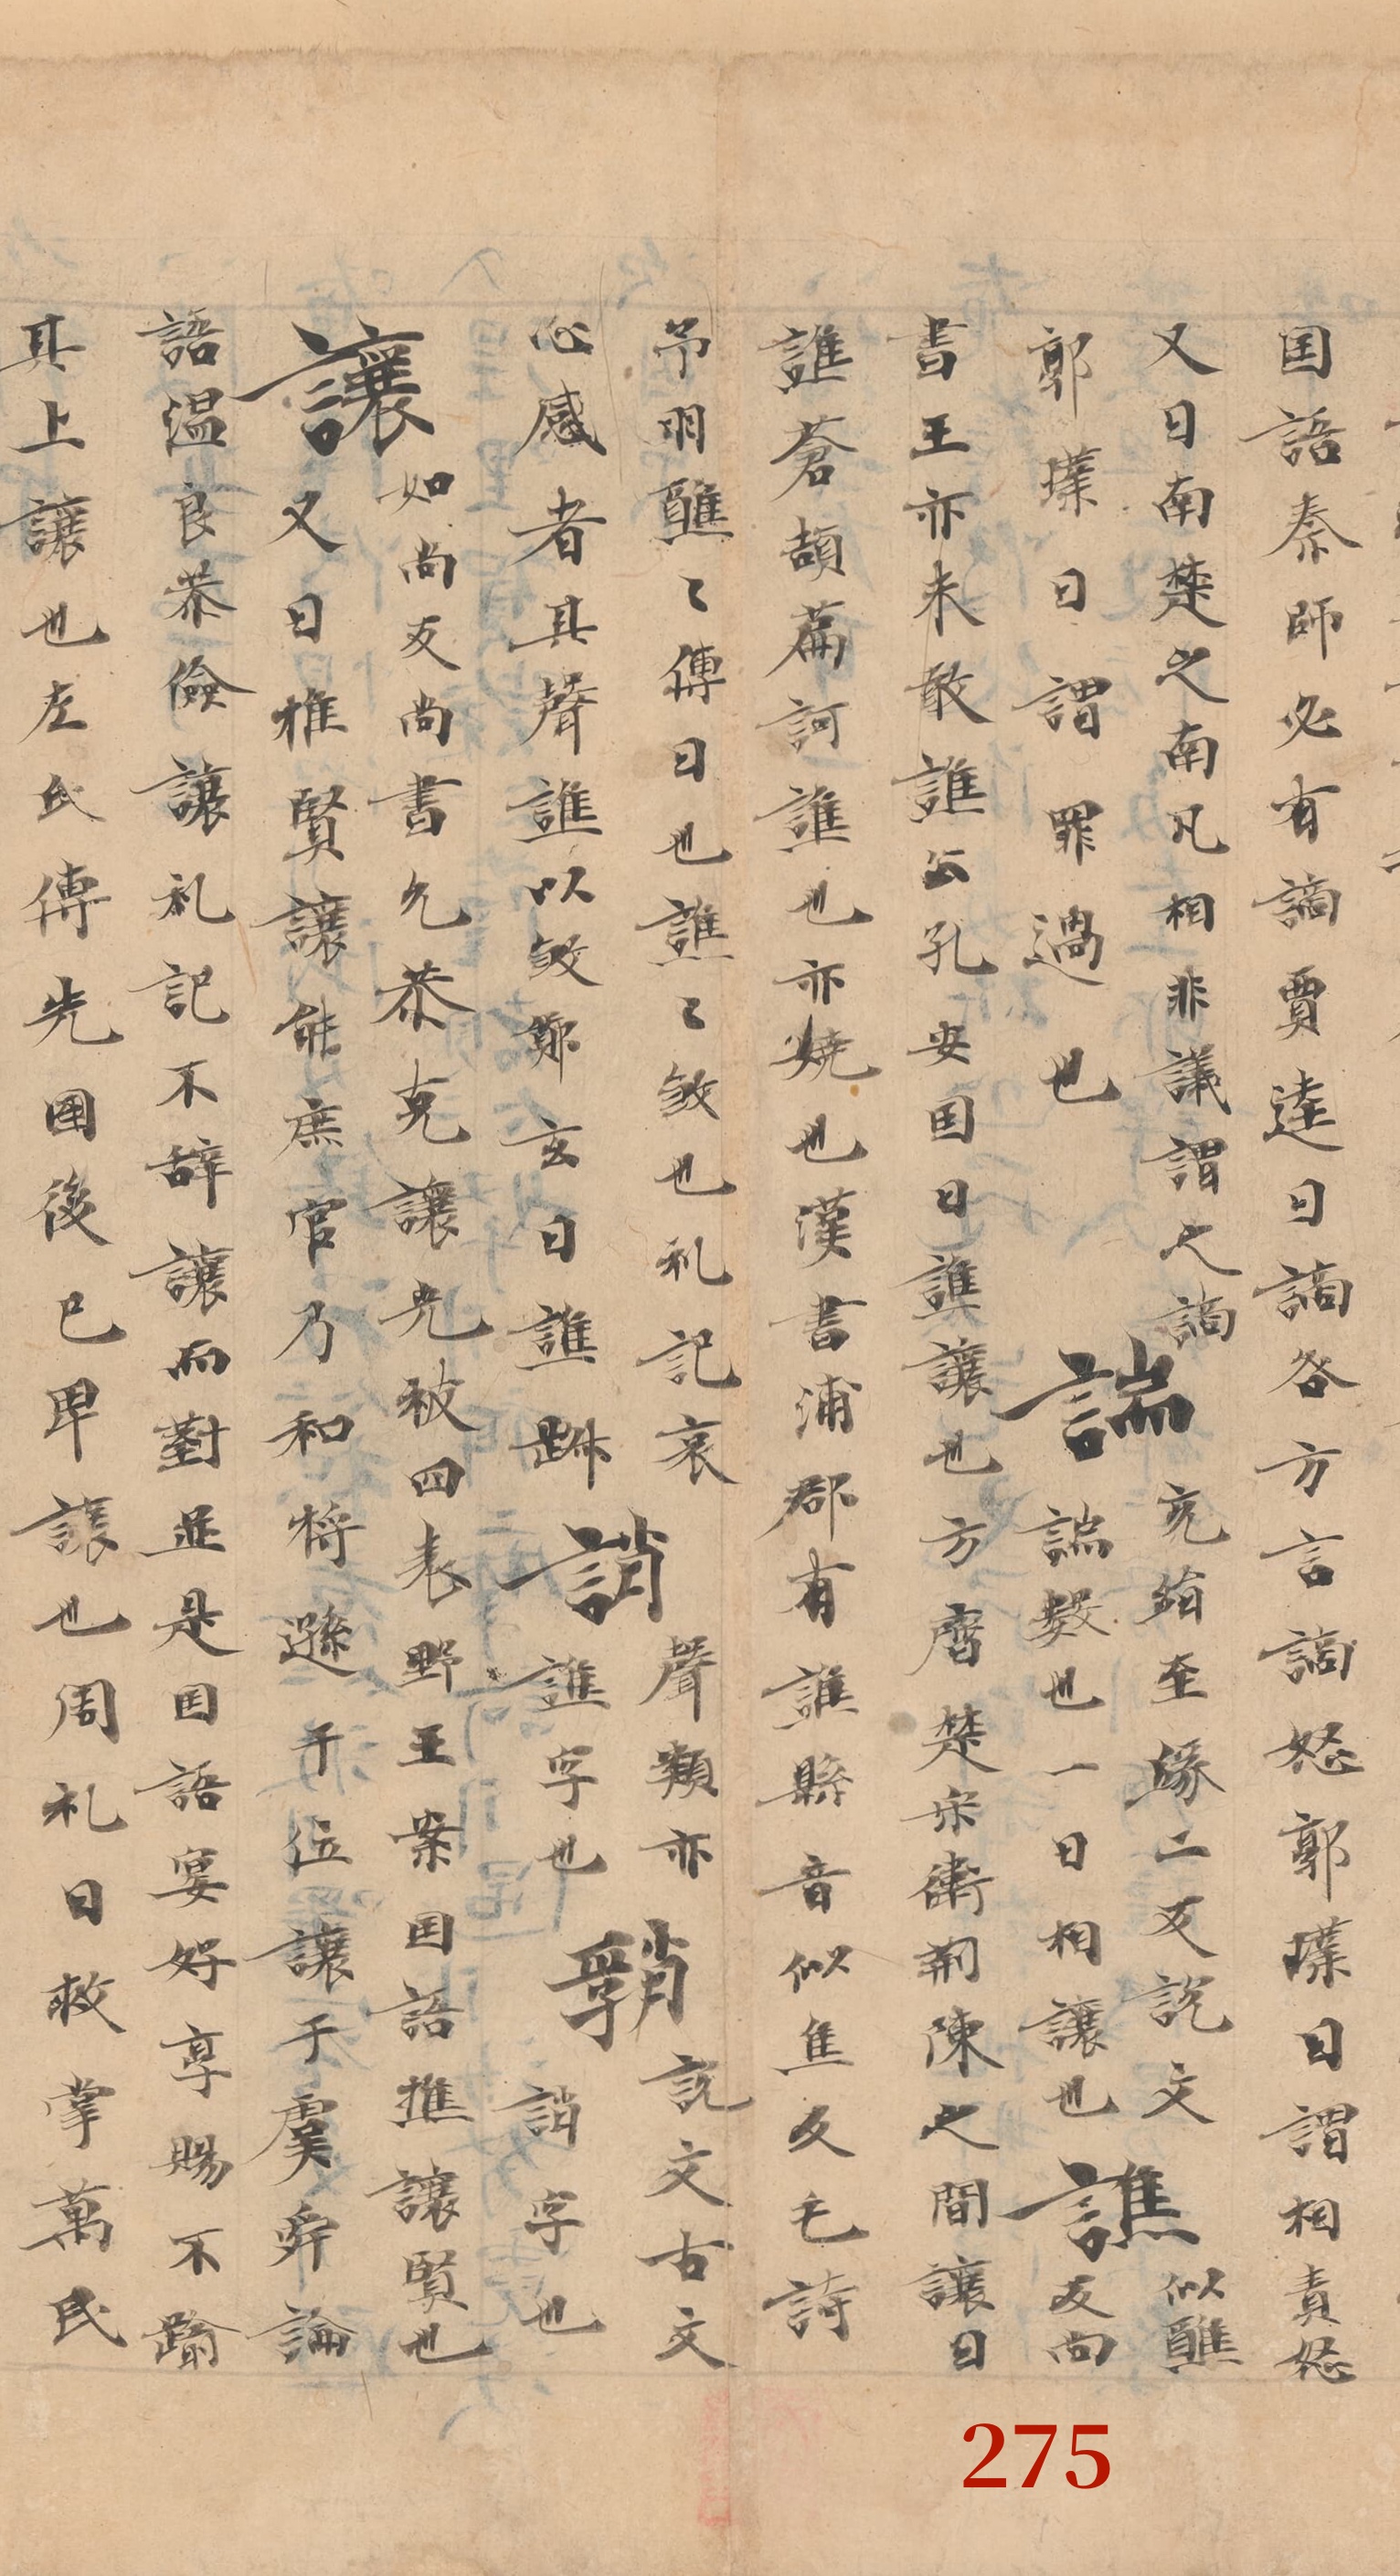 囯語秦師必有謫賈逵曰謫咎方言謫怒郭璞曰謂相責怒
又曰南楚之南凡相非議謂之謫
郭璞曰謂罪過也
諯
充絹至緣二反說文
諯數也一曰相讓也
譙
似醮
反尚
書王亦未敢譙公孔安囯曰譙讓也方膺楚宋衛荊陳之間讓曰
譙蒼頡篇訶譙也亦燒也漢書浦郡有譙縣音似焦反毛詩
予羽譙〻傳曰也譙〻敓也礼記哀
心感者其聲譙以敓鄭玄曰譙䟽
誚
聲類亦
譙字也
䚱
說文古文
誚字也
讓
如尚反尚書允恭克讓光被四表野王案囯語推讓賢也
又曰推賢讓能庶官乃和将遜于位讓于虞舜論
語温良恭儉讓礼記不辞讓而對並是囯語宴好享賜不踰
其上讓也左氏傳先囯後己卑讓也周礼曰救掌萬民
275